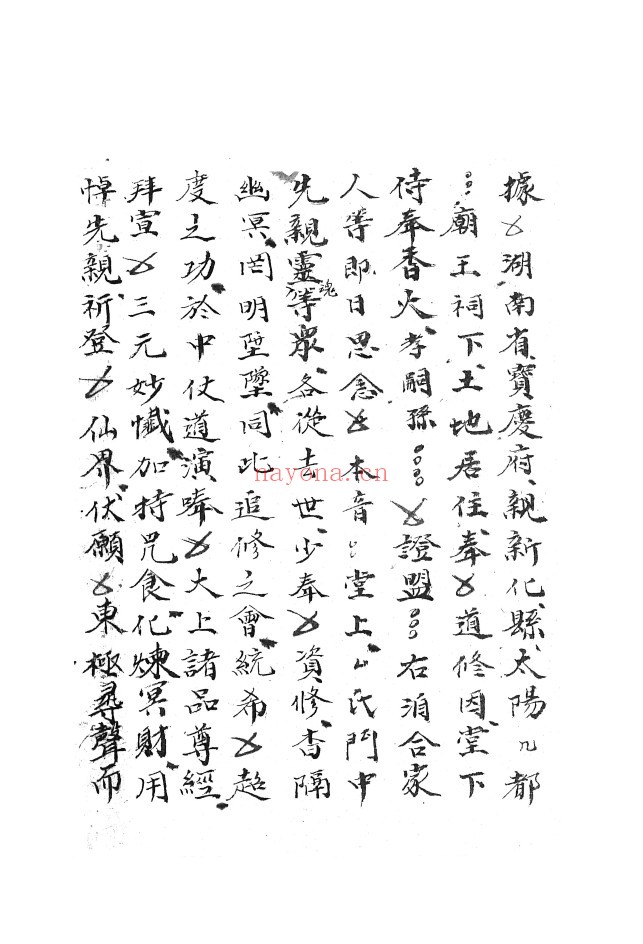 據乂湖南省寶慶府親新化縣太陽几都
廟王祠下土地居住奉乂道修因堂下
侍奉香火孝嗣孫乂證盟右洎合家
人等即日思念乂本音堂上厶氏門中
先親靈魂等眾各從去世少奉乂資修杳隔
幽冥罔明墜同此追修之會統希乂超
度之功於中仗道演乂大上諸品尊經
拜宣乂三元妙懺加持咒食化煉冥財用
悼先親祈登乂仙界伏願乂東極尋聲而
nayona.cn